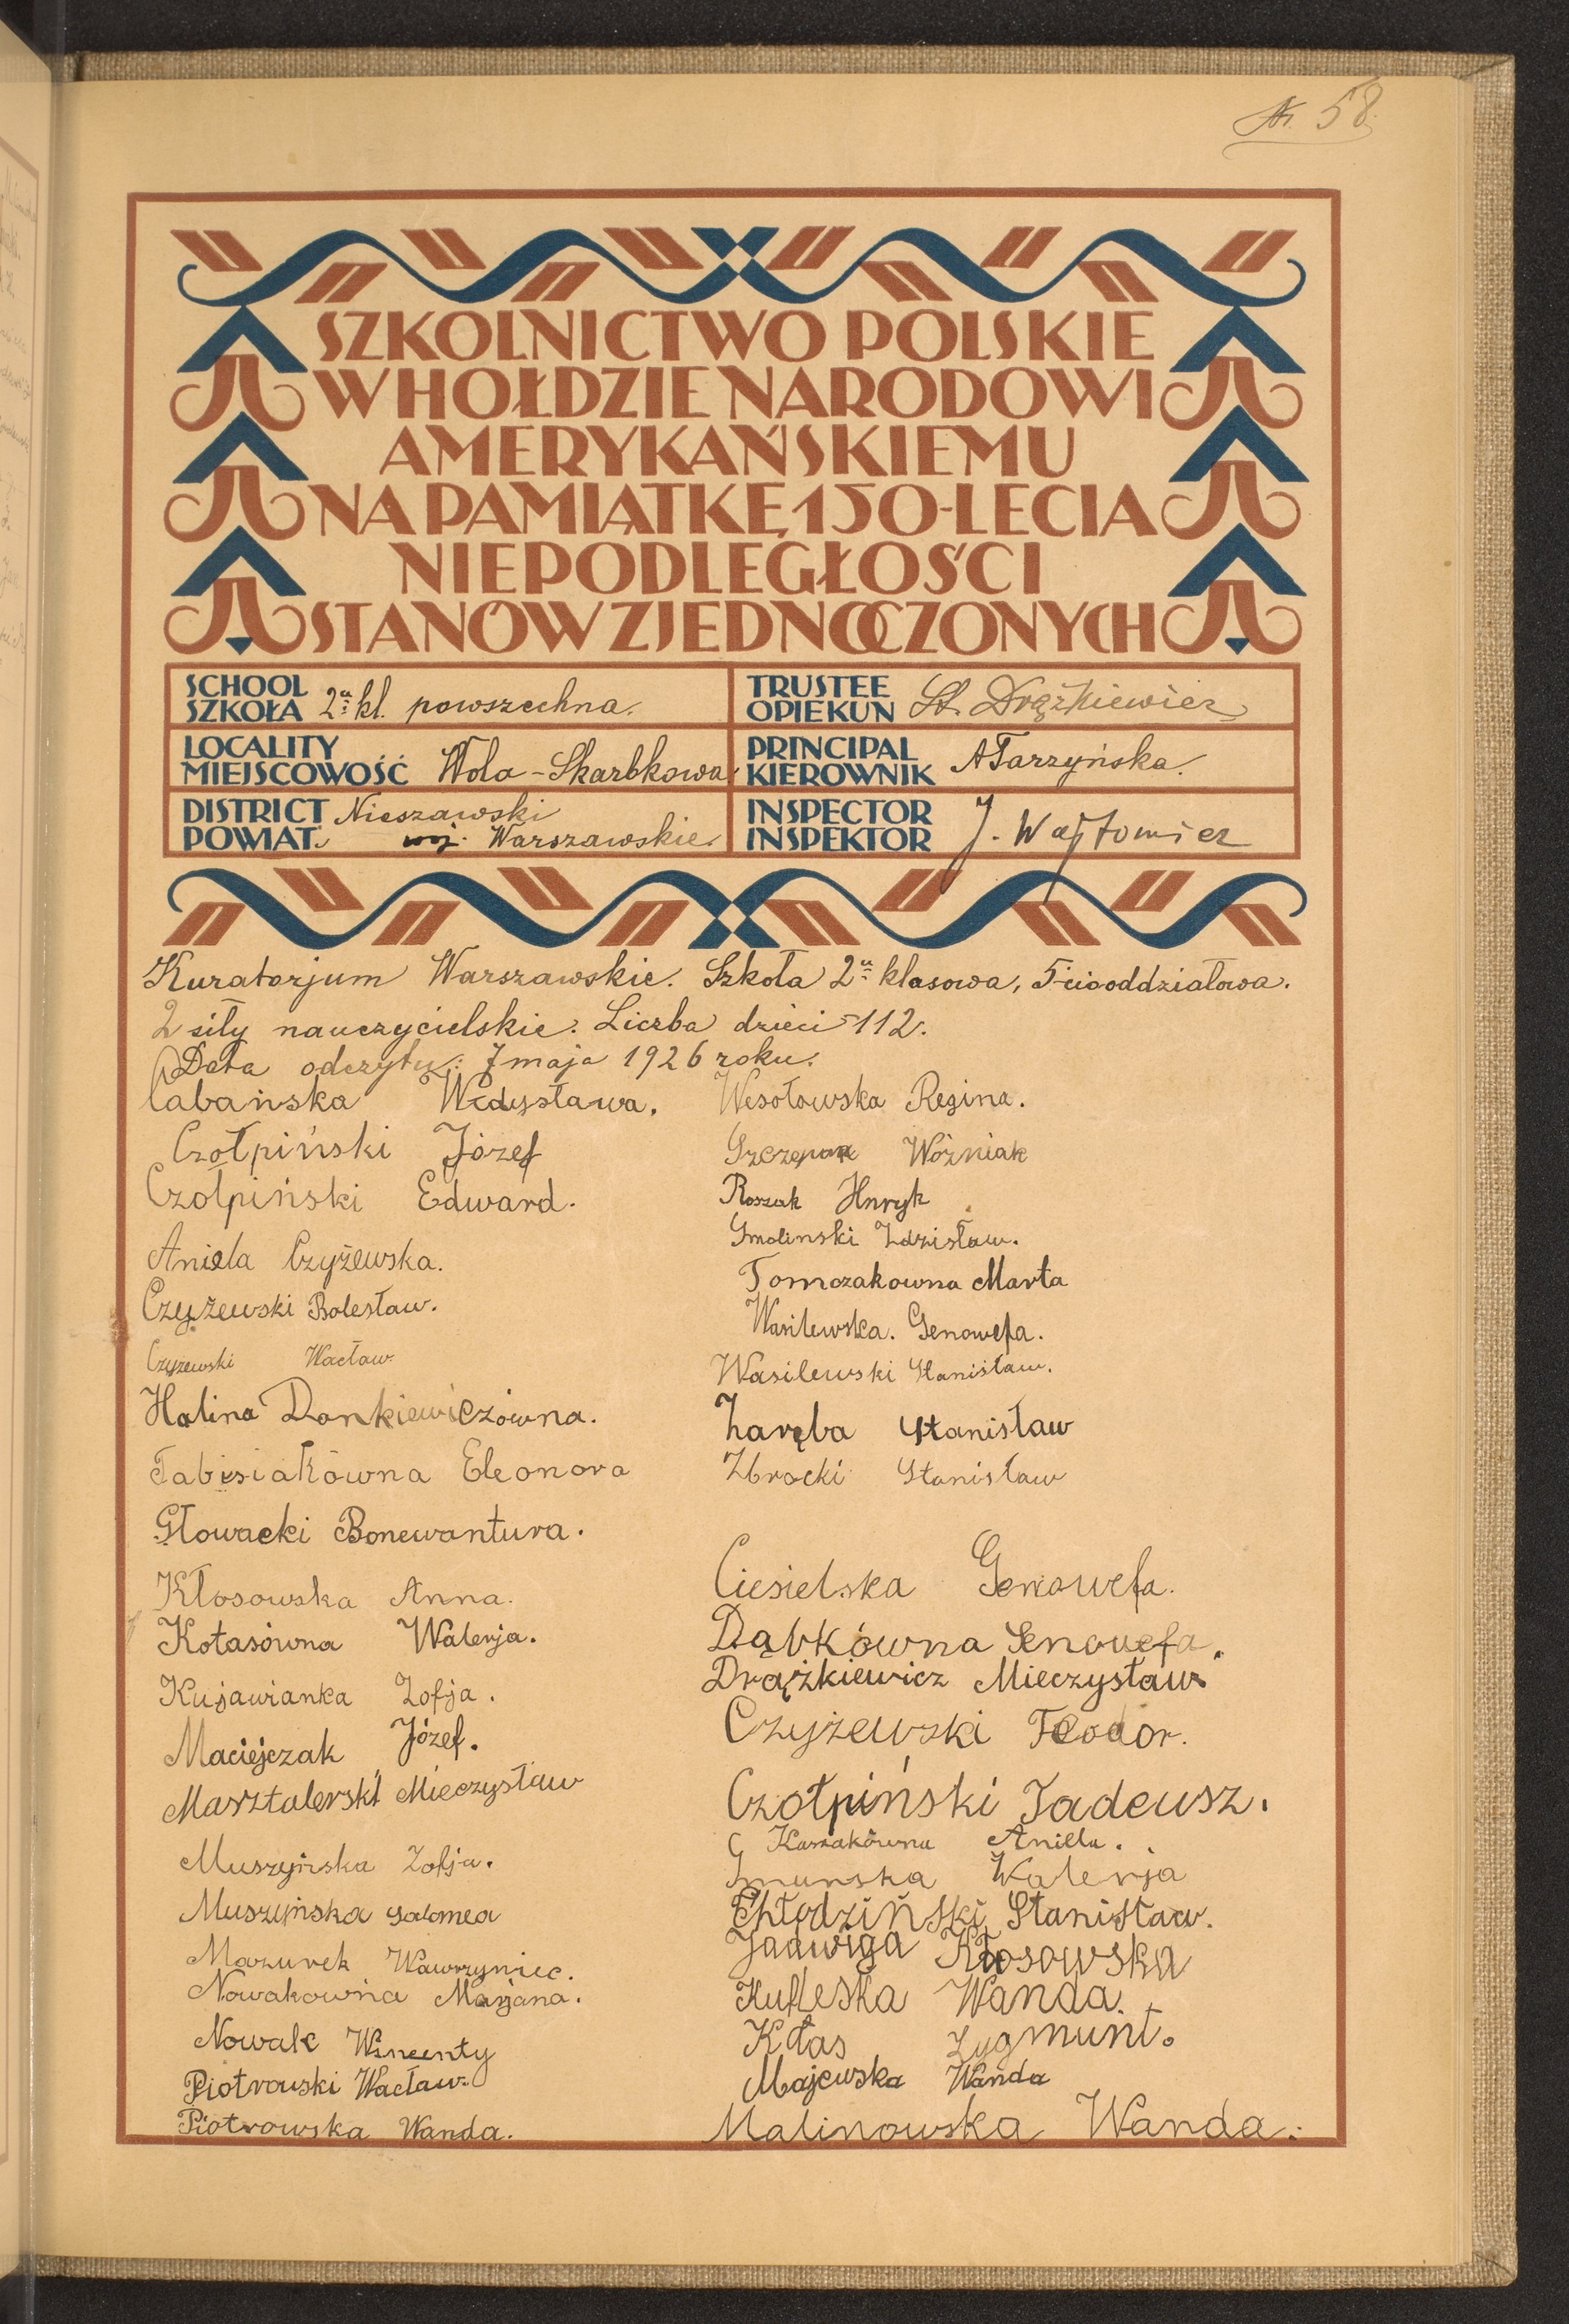 Nr. 58.
SZKOLNICTWO POLSKIE
W HOŁDZIE NARODOWI
AMERYKAŃSKIEMU
NA PAMIĄTKĘ 150-LECIA
NIEPODLEGŁOŚCI
STANÓW ZJEDNOCZONYCH
SCHOOL
SZKOŁA 2u kl. powszechna.
TRUSTEE
OPIEKUN St. Drążkiewicz
LOCALITY
MIEJSCOWOŚĆ Wola-Skarbkowa
PRINCIPAL
KIEROWNIK A Tarzyńska.
DISTRICT Nieszawski
POWIAT. woj. Warszawskie.
INSPECTOR
INSPEKTOR J.
Kuratorjum Warszawskie. Szkoła 2u klasowa, 5-cio oddziałowa.
2 siły nauczycielskie. Liczba dzieci 112.
Data odczytu: 7 maja 1926 roku.
Cabańska
Czołpiński Józef
Czołpiński Edward.
Aniela Czyżewska.
Czyżewski Bolesław.
Czyżewski Wacław.
Halina Donkiewiczówna.
Fabisiakówna Eleonora
Głowacki Bonewantura.
Kłosowska Anna.
Kołasówna Walerja.
Kujawianka Zofja.
Maciejczak Józef.
Marsztalerski Mieczysław
Muszyńska Zofja.
Muszyńska Salomea
Mazurek Wawrzyniec.
Nowakowna Marjana.
Nowak Wincenty
Piotrowski Wacław.
Piotrowska Wanda.
Wesołowska Regina.
Szczepan Woźniak
Roszak Hnryk
Smolinski Zdzisław.
Tomczakowna Marta
Wasilewska. Genowefa.
Wasilewski Stanisław.
Zaręba Stanisław
Zbrocki Stanisław
Ciesielska Genowefa.
Dąbkówna Genowefa.
Drążkiewicz Mieczysław
Czyżewski Teodor.
Czołpiński Tadeusz.
Kaszakówna Aniela.
Walerja
Chłodziński Stanisław.
Jadwiga Kłosowska
Kufleska Wanda.
Kłas Zygmunt.
Majewska Wanda
Malinowska Wanda.